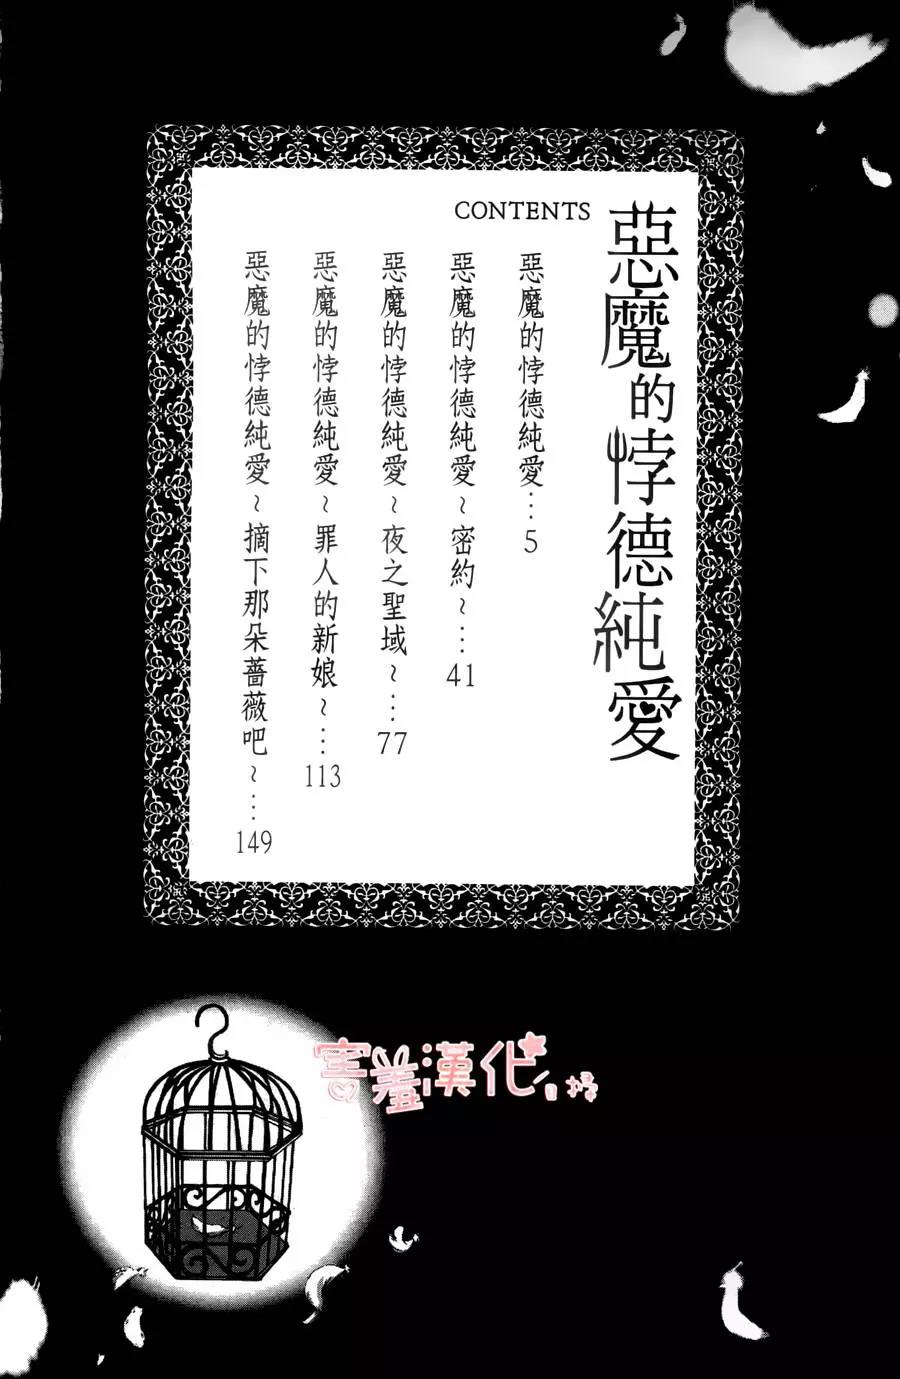 惡魔的悖德純愛
CONTENTS
惡魔的悖德純愛…5
惡魔的悖德純愛~密約~…41
惡魔的悖德純愛~夜之聖域~…77
惡魔的悖德純愛~罪人的新娘~…113
惡魔的悖德純愛~摘下那朵薔薇吧~…149
害羞漢化